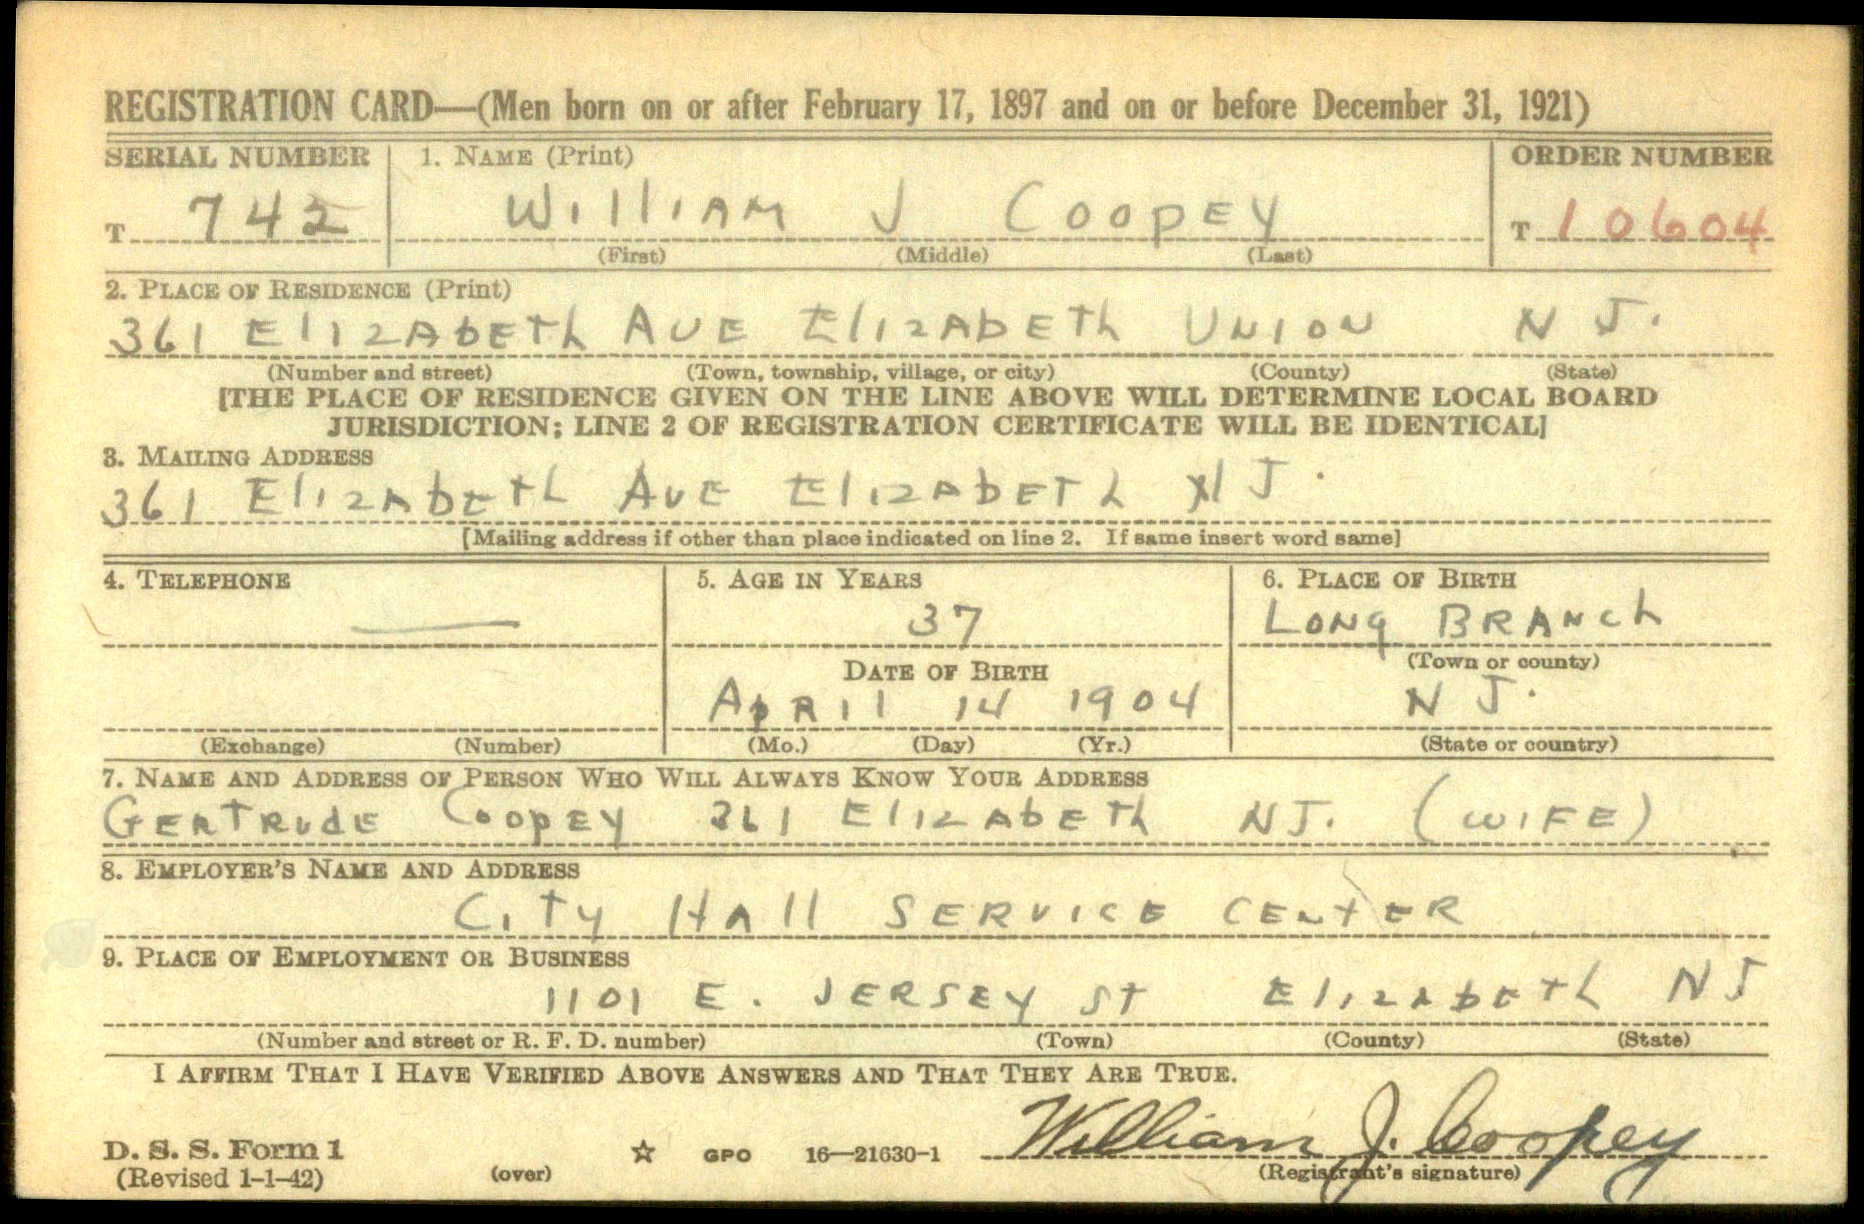 REGISTRATION CARD—(Men born on or after February 17, 1897 and on or before December 31, 1921)
SERIAL NUMBER 1. NAME (Print) ORDER NUMBER
T 742 William J Coopey T 10604
(First) (Middle) (Last)
2. PLACE OF RESIDENCE (Print)
361 Elizabeth Ave Elizabeth Union N J.
(Number and street) (Town, township, village, or city) (County) (State)
[THE PLACE OF RESIDENCE GIVEN ON THE LINE ABOVE WILL DETERMINE LOCAL BOARD
JURISDICTION; LINE 2 OF REGISTRATION CERTIFICATE WILL BE IDENTICAL]
3. MAILING ADDRESS
361 Elizabeth Ave Elizabeth N J.
[Mailing address if other than place indicated on line 2. If same insert word same]
4. TELEPHONE 5. AGE IN YEARS 6. PLACE OF BIRTH
— 37 Long Branch
DATE OF BIRTH (Town or county)
April 14 1904 N J.
(Exchange) (Number) (Mo.) (Day) (Yr.) (State or country)
7. NAME AND ADDRESS OF PERSON WHO WILL ALWAYS KNOW YOUR ADDRESS
Gertrude Coopey 361 Elizabeth NJ. (Wife)
8. EMPLOYER'S NAME AND ADDRESS
City Hall Service Center
9. PLACE OF EMPLOYMENT OR BUSINESS
1101 E. Jersey St Elizabeth NJ
(Number and street or R. F. D. number) (Town) (County) (State)
I AFFIRM THAT I HAVE VERIFIED ABOVE ANSWERS AND THAT THEY ARE TRUE.
William J. Coopey
D. S. S. Form 1 ☆ GPO 16—21630-1
(Revised 1-1-42) (over) (Registrant's signature)